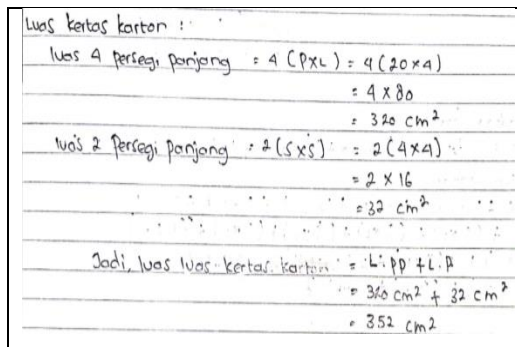 Luas kertas karton :
luas 4 persegi panjang = 4 (PXL) = 4(20x4)
= 4 x 80
= 320 cm²
luas 2 Persegi panjang = 2(sxs) = 2(4x4)
= 2 x 16
= 32 cm²
Jadi, luas luas kertas karton = L. pp + L. P
= 320 cm² + 32 cm²
= 352 cm2